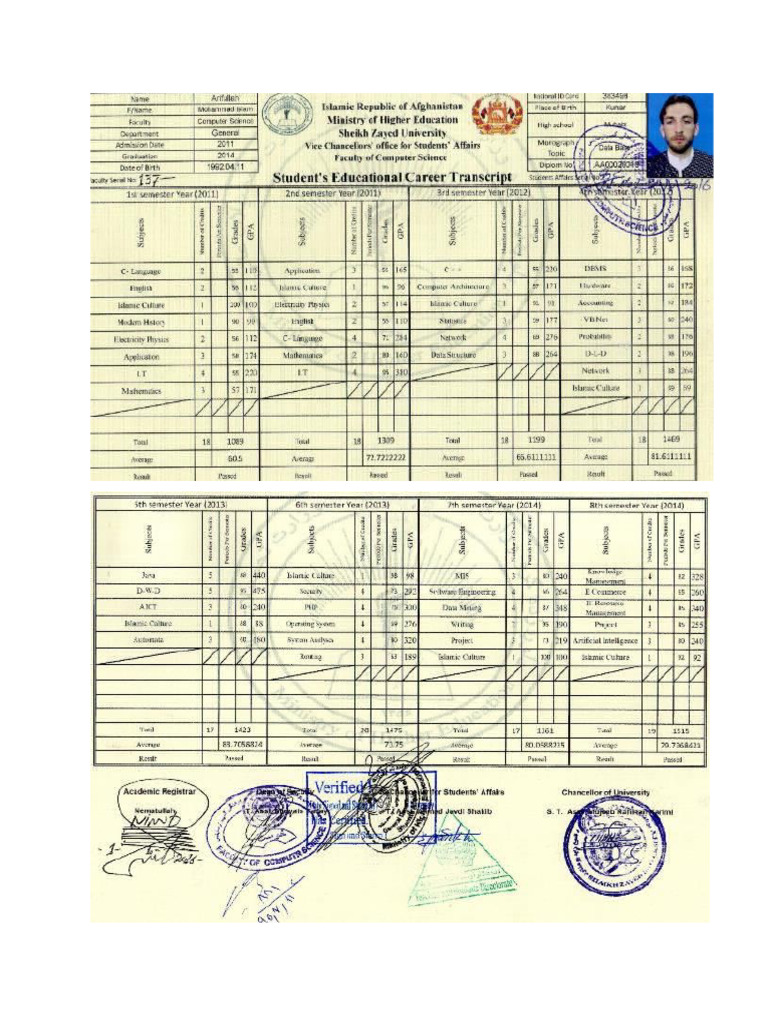 Name Arifullah
F/Name Mohammad Islam
Faculty Computer Science
Department General
Admission Date 2011
Graduation 2014
Date of Birth 1992.04.11
Faculty Serial No: 137
Islamic Republic of Afghanistan
Ministry of Higher Education
Sheikh Zayed University
Vice Chancellors' office for Students' Affairs
Faculty of Computer Science
Student's Educational Career Transcript
National ID Card
Place of Birth Kunar
High school
Monograph Topic Data Base
Diplom No
Students Affairs Serial No
1st semester Year (2011)
Subjects Number of Credits Periods Per Semester Grades GPA
C- Language 2
English 2 56 112
Islamic Culture 1 100 100
Modern History 1 90 90
Electricity Physics 2 56 112
Application 3 58 174
I.T 4 55 220
Mathematics 3 57 171
Total 18 1089
Average 60.5
Result Passed
2nd semester Year (2011)
Subjects Number of Credits Periods Per Semester Grades GPA
Application 3 55 165
Islamic Culture 1 96 96
Electricity Physics 2 57 114
English 2 55 110
C- Language 4 71 284
Mathematics 2 80 160
I.T 4
Total 18 1309
Average 72.7222222
Result Passed
3rd semester Year (2012)
Subjects Number of Credits Periods Per Semester Grades GPA
C++ 4 55 220
Computer Architecture 3 57 171
Islamic Culture 1 91 91
Statistics 3 59 177
Network 4 69 276
Data Structure 3 88 264
Total 18 1199
Average 66.6111111
Result Passed
4th semester Year
Subjects Number of Credits Periods Grades GPA
DBMS 3 56 168
Hardware 2 86 172
Accounting 2 92 184
VB.Net 3 80 240
Probability 2
D-L-D 2 98 196
Network 3 88 264
Islamic Culture 1 89 89
Total 18 1469
Average 81.6111111
Result Passed
5th semester Year (2013)
Subjects Number of Credits Periods Per Semester Grades GPA
Java 5 88 440
D-W-D 5 95 475
AICT 3 80 240
Islamic Culture 1 88 88
Automata 3 60 180
Total 17 1423
Average 83.7058824
Result Passed
6th semester Year (2013)
Subjects Number of Credits Periods Per Semester Grades GPA
Islamic Culture 1 98 98
Security 4 73 292
PHP 4
Operating System 4 69 276
System Analyses 4 80 320
Routing 3 63 189
Total 20 1475
Average 73.75
Result Passed
7th semester Year (2014)
Subjects Number of Credits Periods Per Semester Grades GPA
MIS 3 80 240
Software Engineering 4 66 264
Data Mining 4 87 348
Writing 2 95 190
Project 3 73 219
Islamic Culture 1 100 100
Total 17 1361
Average 80.0588235
Result Passed
8th semester Year (2014)
Subjects Number of Credits Periods Per Semester Grades GPA
Knowledge Management 4 82 328
E Commerce 4 65 260
E Resource Management 4 85 340
Project 3 85 255
Artificial Intelligence 3 80 240
Islamic Culture 1 92 92
Total 19 1515
Average 79.7368421
Result Passed
Academic Registrar
Nematullah
Dean of Faculty
Verified
Chancellor for Students' Affairs
Javdi Shakib
Chancellor of University
FACULTY OF COMPUTER SCIENCE